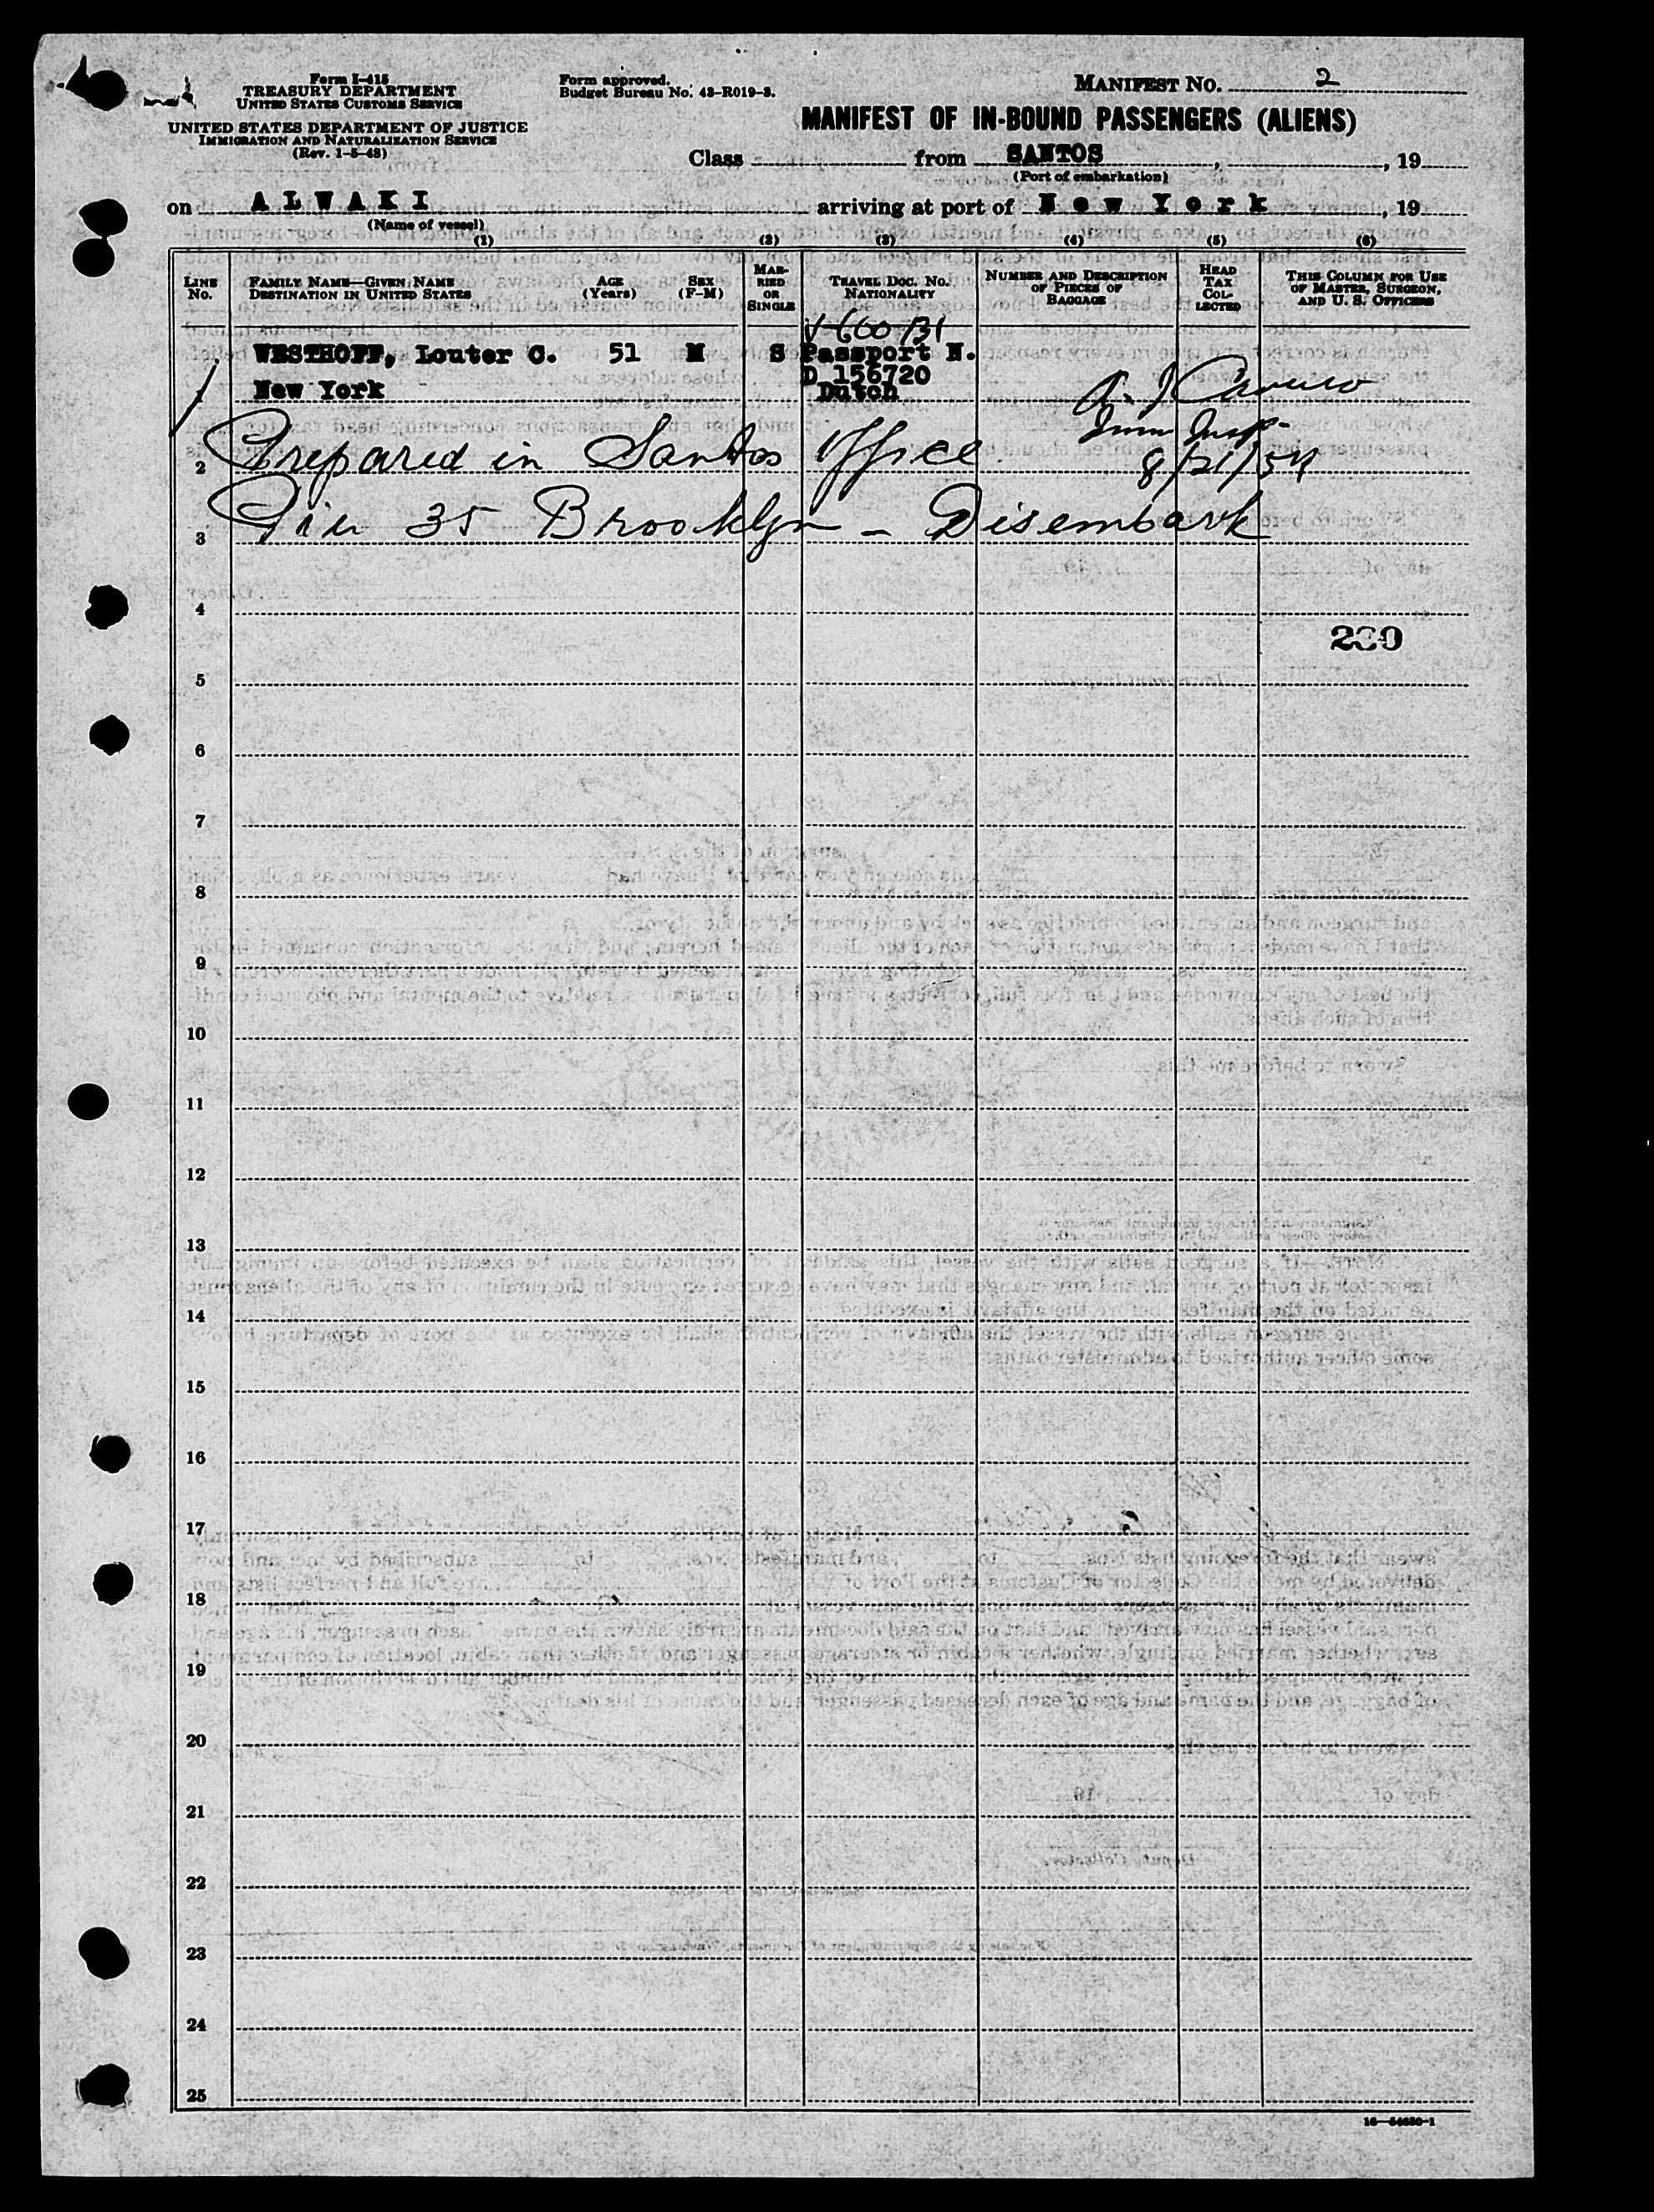 Form I-415
TREASURY DEPARTMENT
UNITED STATES CUSTOMS SERVICE
UNITED STATES DEPARTMENT OF JUSTICE
IMMIGRATION AND NATURALIZATION SERVICE
(Rev. 1-5-48)
Form approved.
Budget Bureau No. 43-R019-3.
MANIFEST NO. 2
MANIFEST OF IN-BOUND PASSENGERS (ALIENS)
Class from SANTOS , , 19
(Port of embarkation)
on ALWAKI arriving at port of New York , 19
(Name of vessel)
(1) (2) (3) (4) (5) (6)
LINE NO.
FAMILY NAME—GIVEN NAME
DESTINATION IN UNITED STATES
AGE (Years)
SEX (F-M)
MARRIED OR SINGLE
TRAVEL DOC. NO.
NATIONALITY
NUMBER AND DESCRIPTION OF PIECES OF BAGGAGE
HEAD TAX COLLECTED
THIS COLUMN FOR USE OF MASTER, SURGEON, AND U. S. OFFICERS
WESTHOFF, Louter C. 51 M S Passport N.
D 156720
1 New York Dutch
Imm Insp-
2 Prepared in Santos Office. 8/21/54
3 Pier 35 Brooklyn - Disembark
4
5
6
7
8
9
10
11
12
13
14
15
16
17
18
19
20
21
22
23
24
25